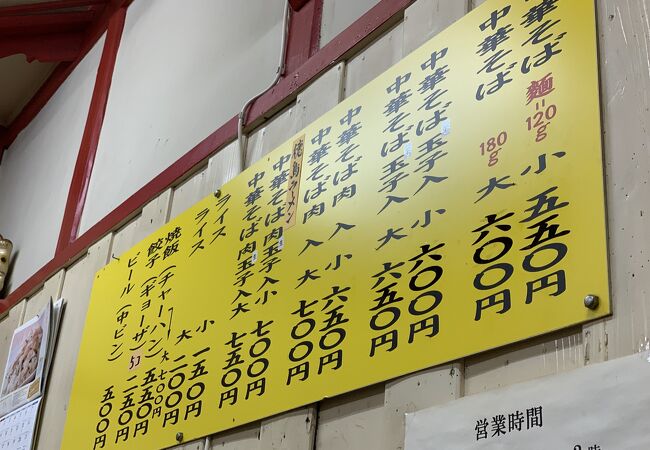 中華そば 麺=120g 小 五五〇円
中華そば 180g 大 六〇〇円
中華そば玉子入 小 六〇〇円
中華そば玉子入 大 六五〇円
中華そば肉 入 小 六五〇円
中華そば肉 入 大 七〇〇円
徳島ラーメン
中華そば肉玉子入小 七〇〇円
中華そば肉玉子入大 七五〇円
ライス 小 一五〇円
ライス 大 二〇〇円
焼飯(チャーハン) 大七〇〇円 五五〇円
餃子(ギョーザ) 二五〇円
ビール(中ビン) 五〇〇円
営業時間